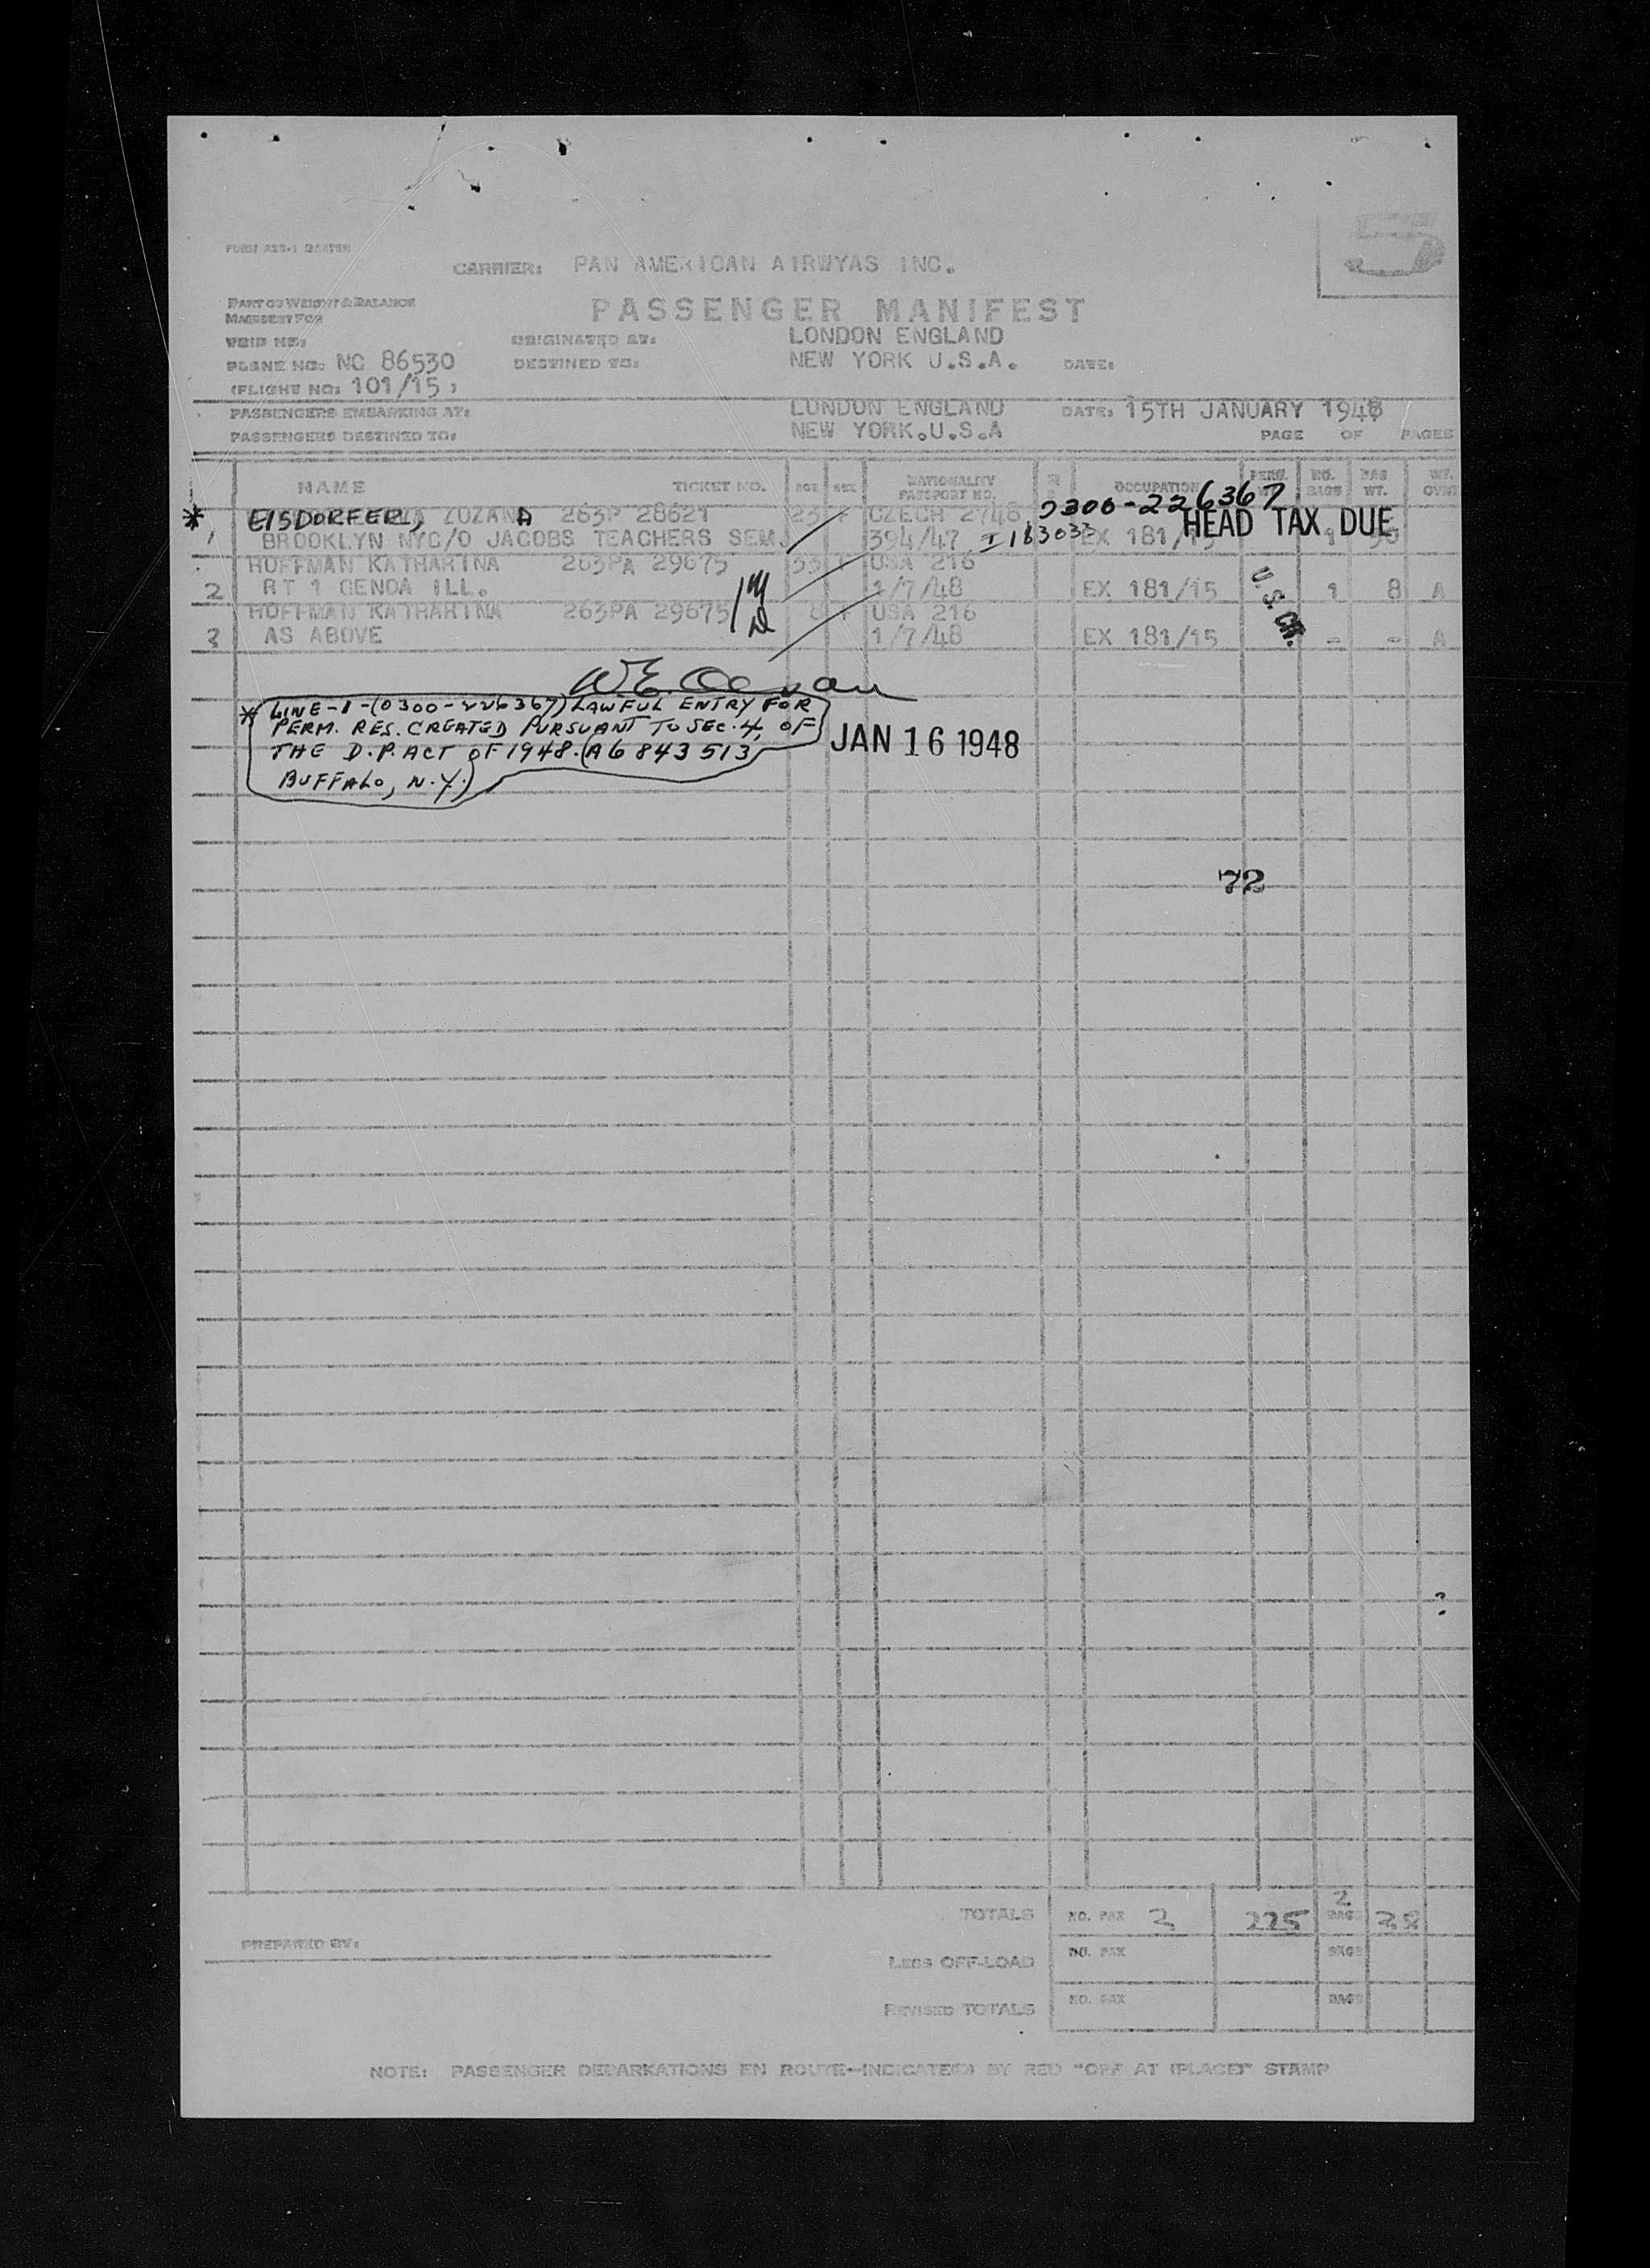 5
CARRIER: PAN AMERICAN AIRWYAS INC.
PART OF WEIGHT & BALANCE
MANIFEST FOR
PASSENGER MANIFEST
TRIP NO: ORIGINATED AT: LONDON ENGLAND
PLANE NO: NC 86530 DESTINED TO: NEW YORK U.S.A. DATE:
(FLIGHT NO: 101/15)
PASSENGERS EMBARKING AT: LONDON ENGLAND DATE: 15TH JANUARY 1948
PASSENGERS DESTINED TO: NEW YORK.U.S.A PAGE OF PAGES
NAME TICKET NO. AGE SEX NATIONALITY PASSPORT NO. OCCUPATION NO. BAGS BAG WT.
0300-226367
* EISDORFER, ZUZANA 263P 28621 23 CZECH 2748
1 BROOKLYN NYC/O JACOBS TEACHERS SEM. 394/47 I 183033 EX 181/15 HEAD TAX DUE 1
HOFFMAN KATHARINA 263PA 29675 33 USA 216
2 RT 1 GENOA ILL. 1/7/48 EX 181/15 U.S. Cit. 1 8 A
HOFFMAN KATHARINA 263PA 29675/ 8 USA 216
3 AS ABOVE 1/7/48 EX 181/15 - - A
* LINE-1-(0300-226367) LAWFUL ENTRY FOR
PERM. RES. CREATED PURSUANT TO SEC. 4, OF
THE D.P. ACT OF 1948. (A6 843 513
BUFFALO, N.Y.)
JAN 16 1948
72
TOTALS NO. PAX 225 2 BAGS 38
PREPARED BY:
LESS OFF-LOAD NO. PAX BAGS
REVISED TOTALS NO. PAX BAGS
NOTE: PASSENGER DEBARKATIONS EN ROUTE-INDICATE(D) BY RED "OFF AT (PLACE)" STAMP